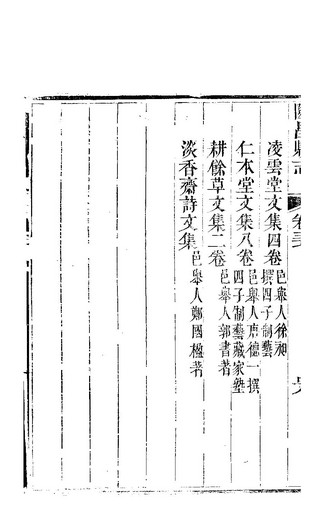 昌縣志
卷三
凌雲堂文集四卷 邑舉人徐昶撰四子制藝
仁本堂文集八卷 邑舉人唐德一撰四子制藝藏家塾
耕餘草文集二卷 邑舉人郭書著
淡香齋詩文集 邑舉人鄭國楹著